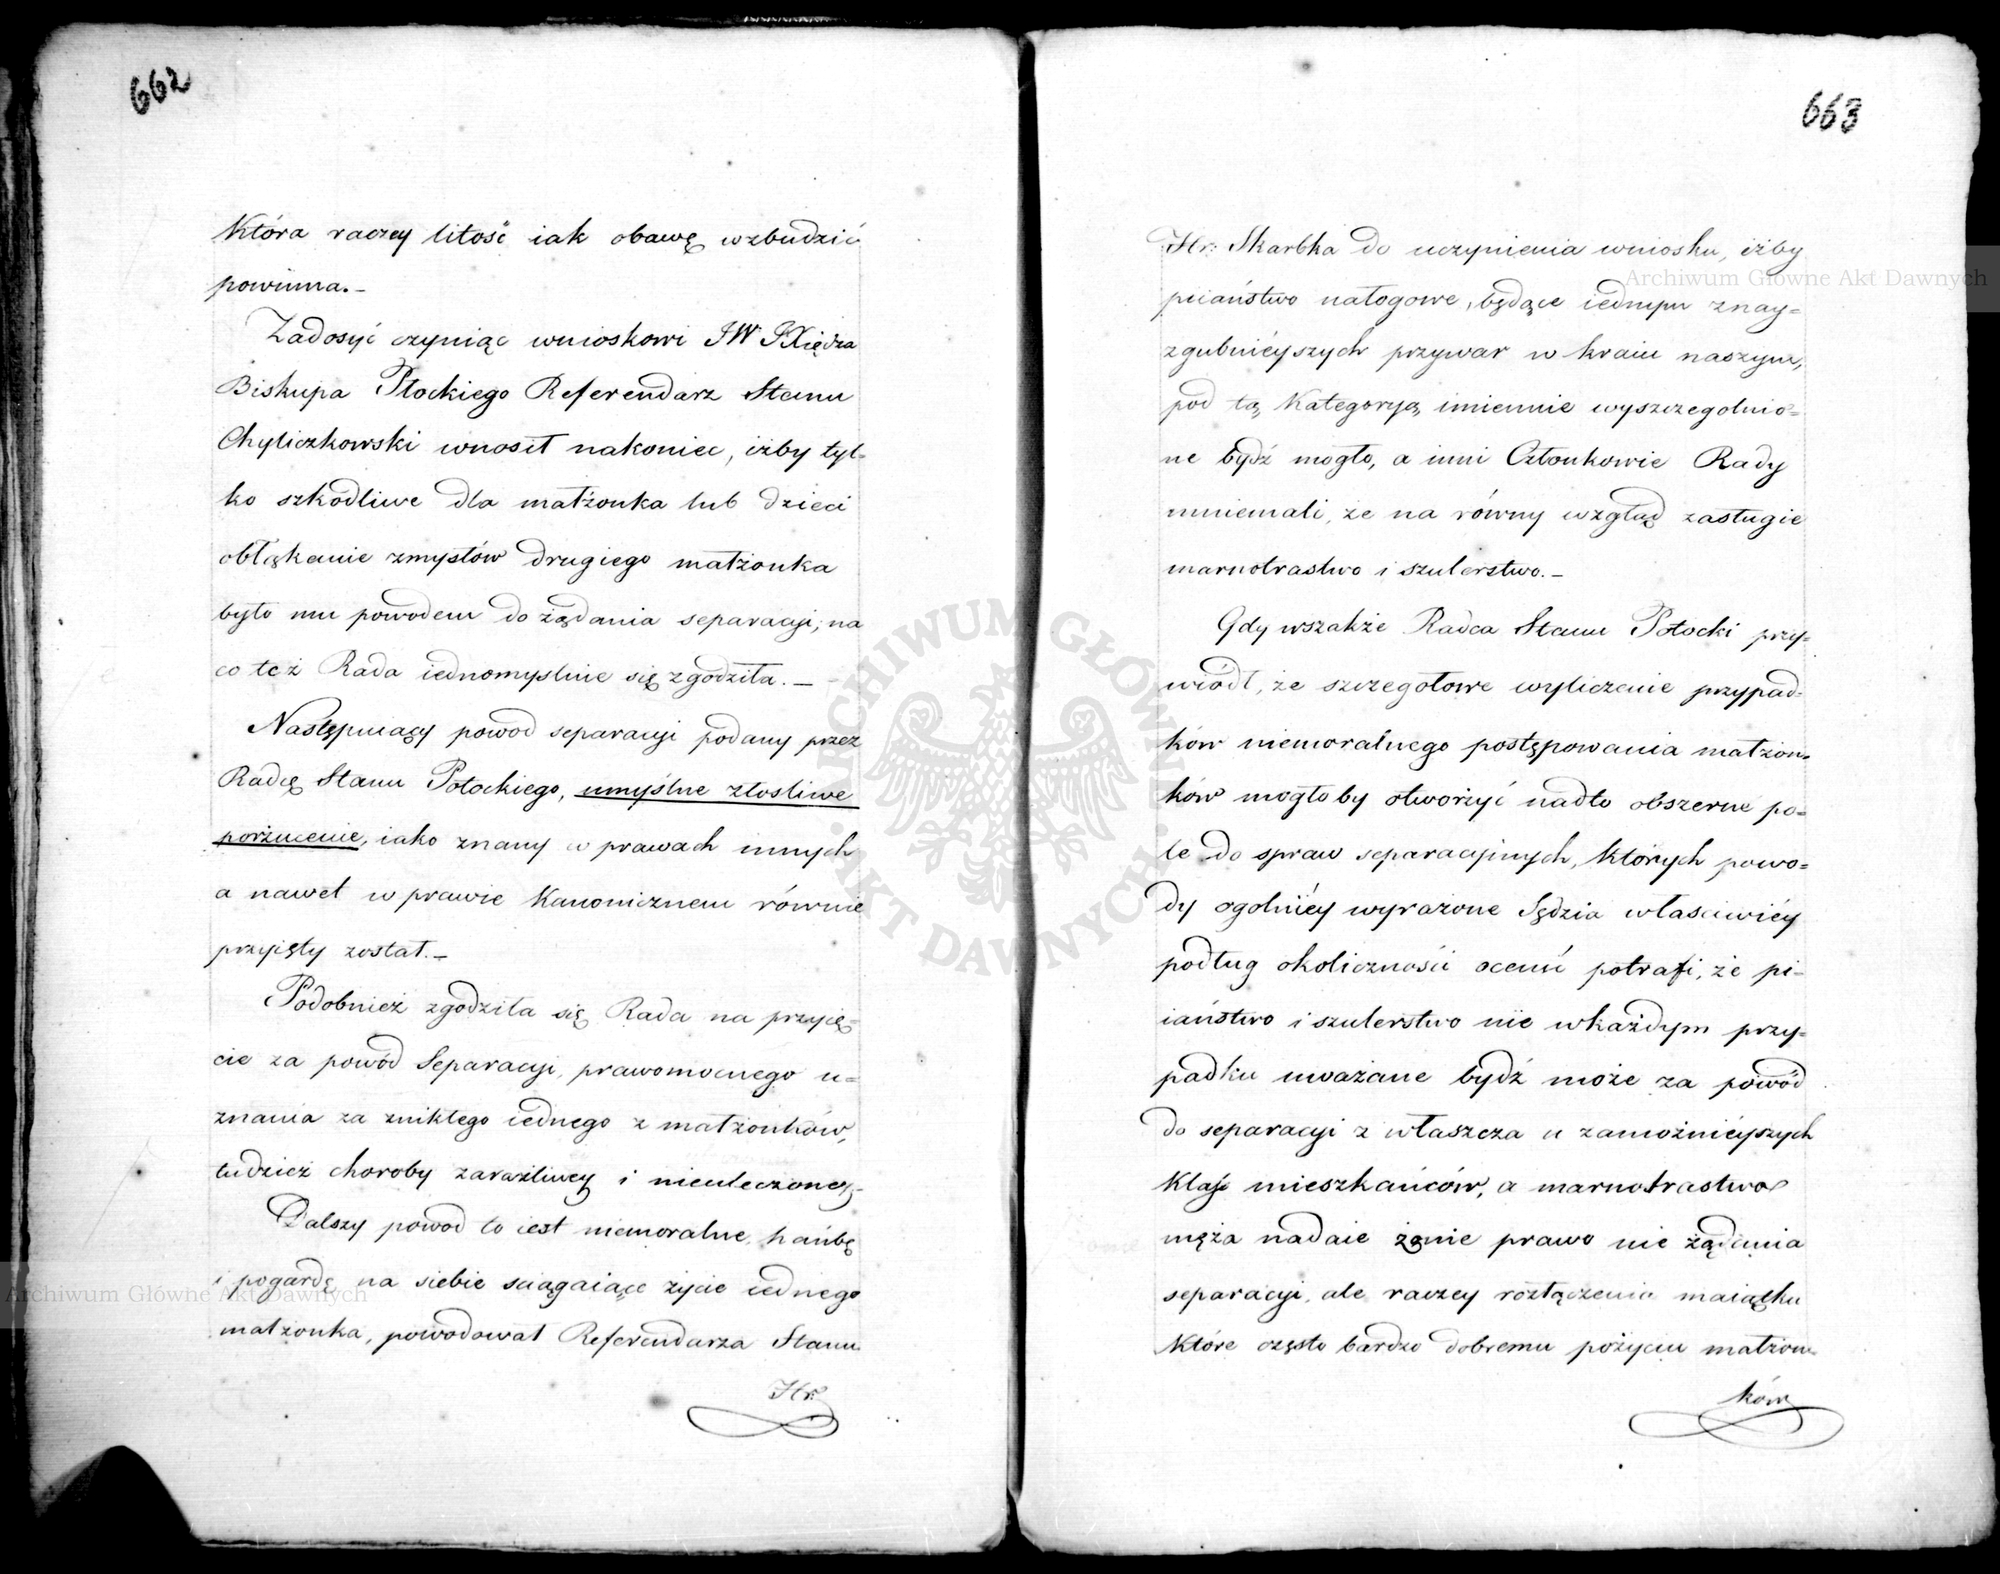 662
Która raczey litość iak obawę wzbudzić
powinna.–
Zadosyć czyniąc wnioskowi JW. JXiędza
Biskupa Płockiego Referendarz Stanu
Chyliczkowski wnosił nakoniec, iżby tyl=
ko szkodliwe dla małżonka lub dzieci
obłąkanie zmysłów drugiego małżonka
było mu powodem do żądania separacyi, na
co też Rada iednomyslnie się zgodziła.–
Następuiący powod separacyi podany przez
Radcę Stanu Potockiego, umyślne złosliwe
porzucenie, iako znany w prawach innych
a nawet w prawie Kanonicznem równie
przyięty został.–
Podobnież zgodziła się Rada na przyię=
cie za powód Separacyi, prawomocnego u=
znania za znikłego iednego z małżonków,
tudzież choroby zaraźliwey i nieuleczoney.–
Dalszy powod to iest niemoralne, hańbę
i pogardę na siebie sciągaiące życie iednego
małżonka, powodował Referendarza Stanu
Hr:
663
Hr: Skarbka do uczynienia wniosku, iżby
piiaństwo nałogowe, będące iednym z nay=
zgubnieyszych przywar w kraiu naszym,
pod tą Kategoryą imiennie wyszczegolnio=
ne bydź mogło, a inni Członkowie Rady
mniemali, że na równy wzgląd zasługie
marnotrastwo i szulerstwo.–
Gdy wszakże Radca Stanu Potocki przy=
wiódł, że szczegołowe wyliczenie przypad=
ków niemoralnego postępowania małżon=
ków mogłoby otworzyć nadto obszerne po=
le do spraw separacyinych, których powo=
dy ogolniéy wyrażone Sędzia własciwiéy
podług okoliczności ocenić potrafi, że pi=
iaństwo i szulerstwo nie w każdym przy=
padku uważane bydź może za powód
do separacyi z właszcza u zamożniéyszych
Klass mieszkańców, a marnotrastwo
męża nadaie żonie prawo nie żądania
separacyi, ale raczey rozłączenia maiątku
Które często bardzo dobremu pożyciu małżon=
ków
Archiwum Główne Akt Dawnych
Archiwum Główne Akt Dawnych
ARCHIWUM GŁÓWNE · AKT DAWNYCH ·